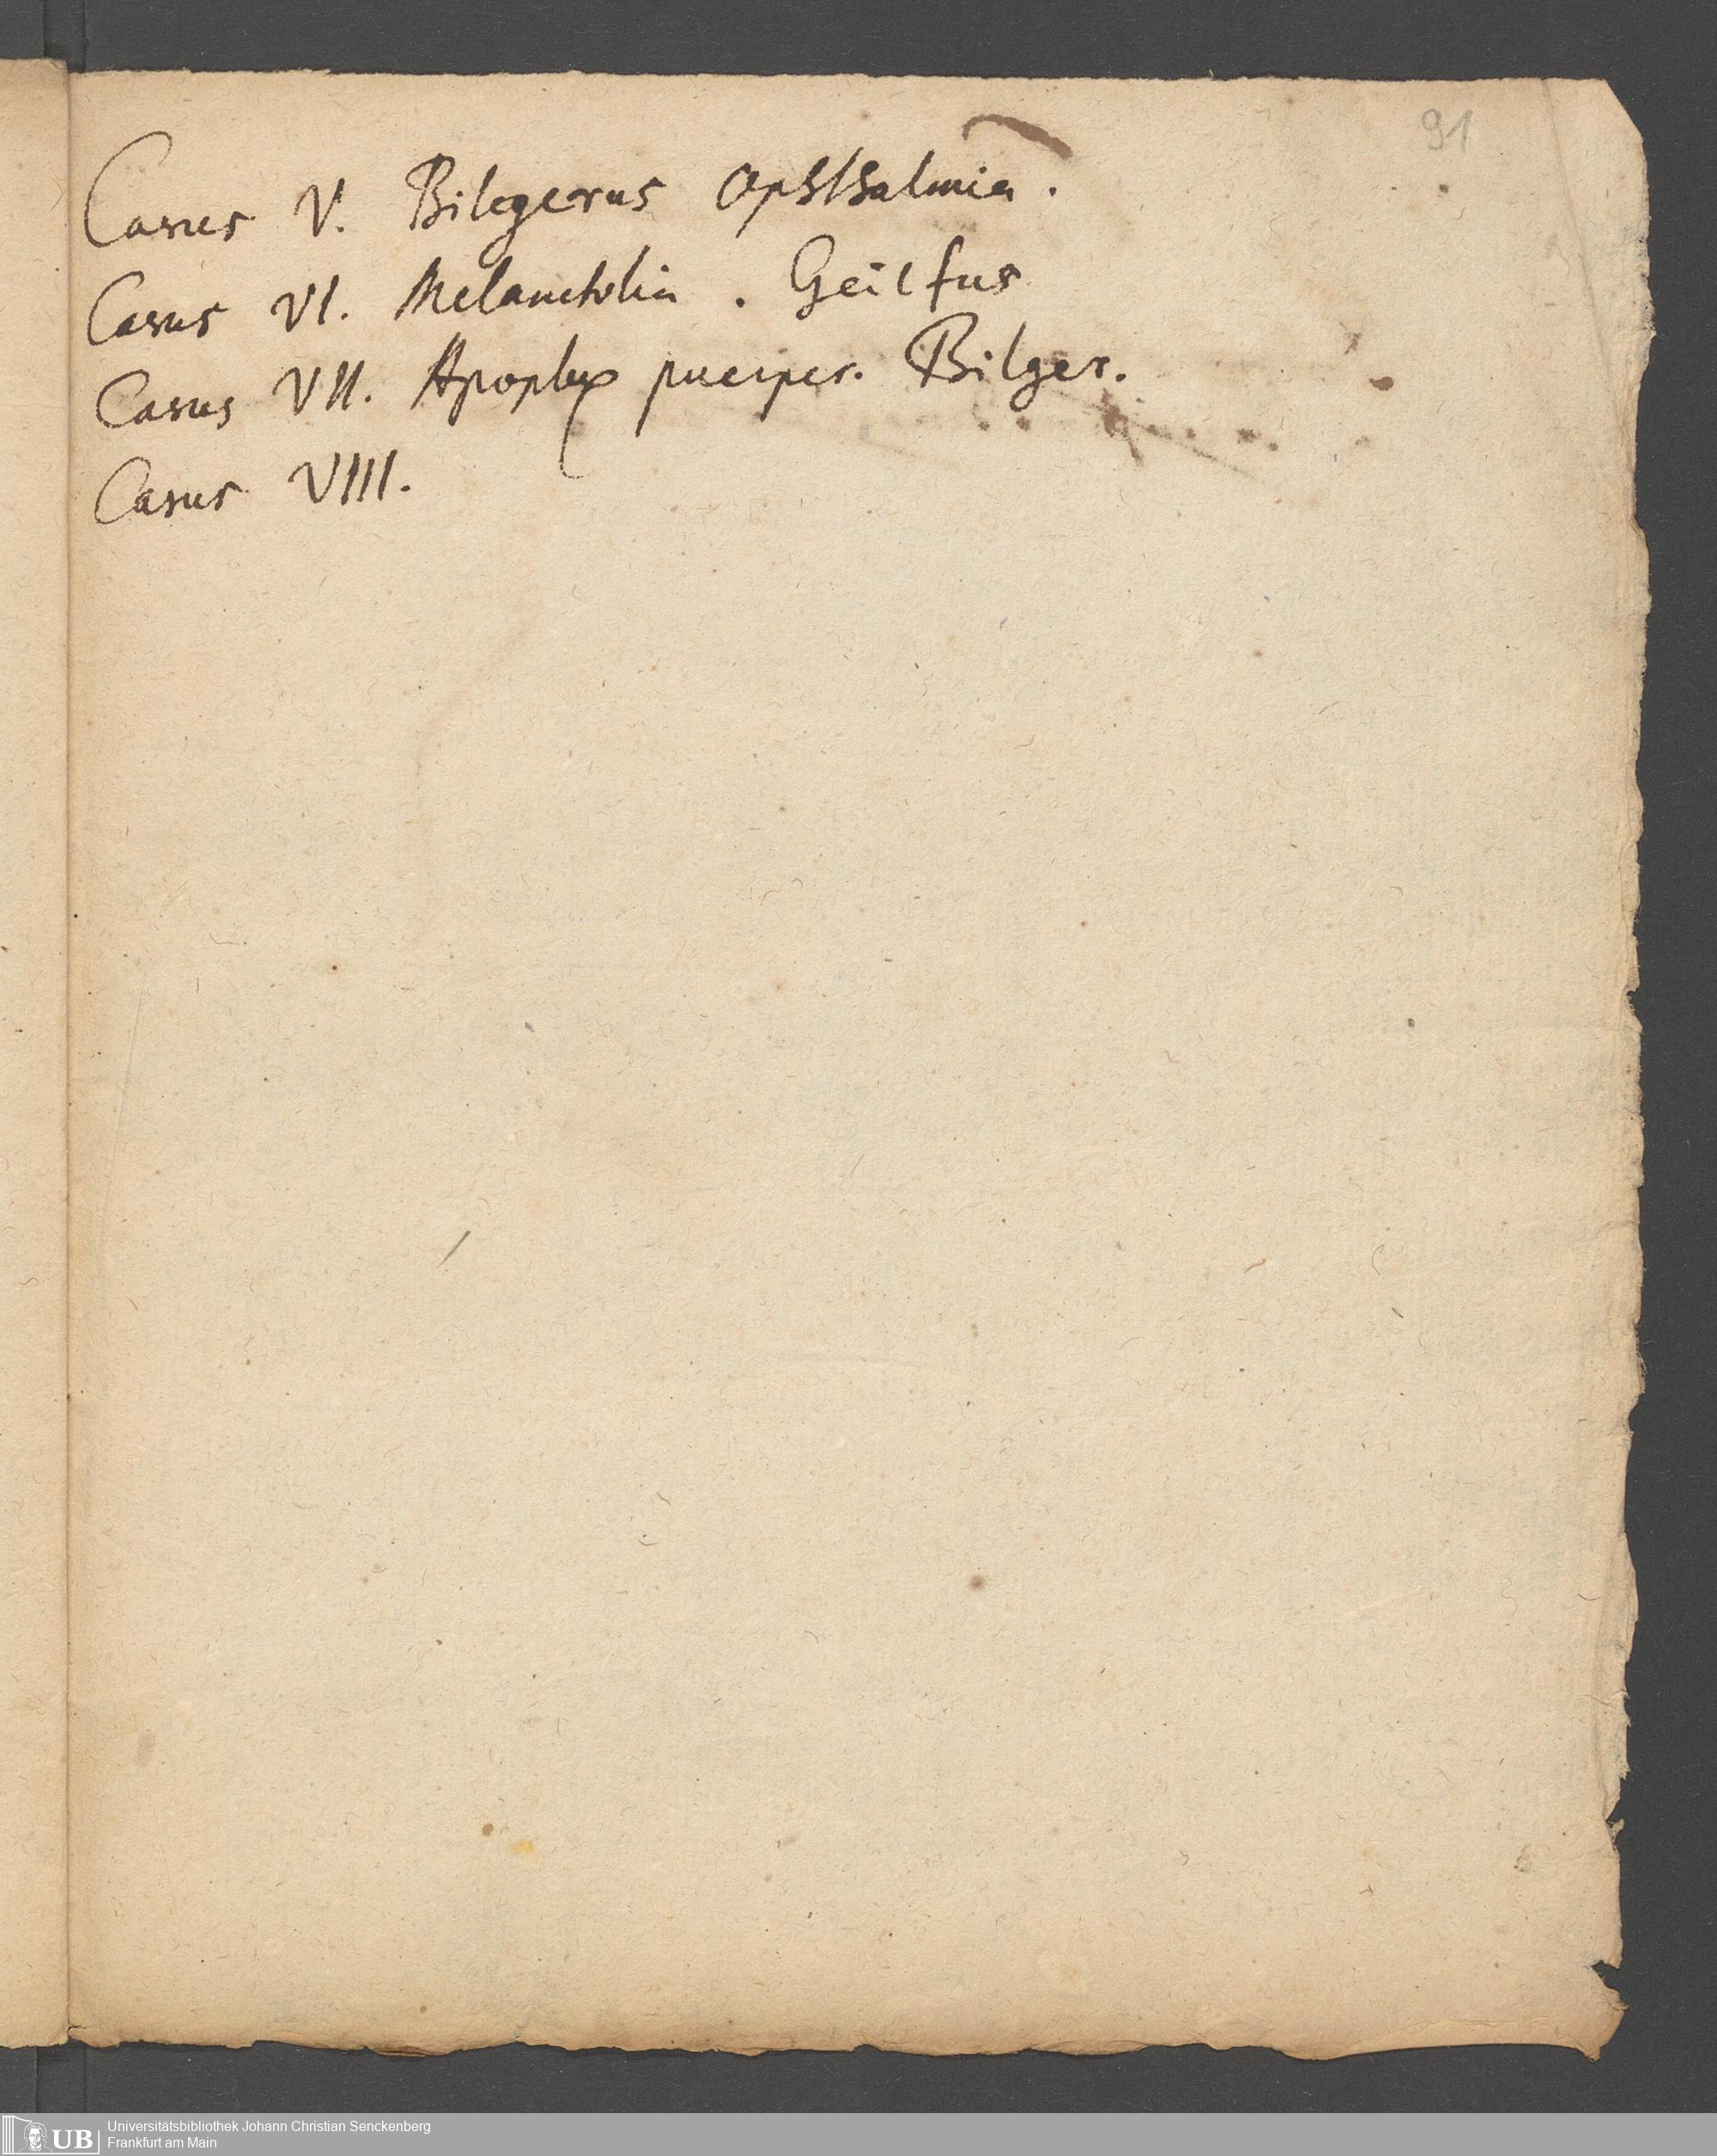 91
Casus V. Bilgerus Ophthalmia.
Casus VI. Melancholia. Geilfus
Casus VII. Apoplex puerper. Bilger.
Casus VIII.
UB Universitätsbibliothek Johann Christian Senckenberg
Frankfurt am Main